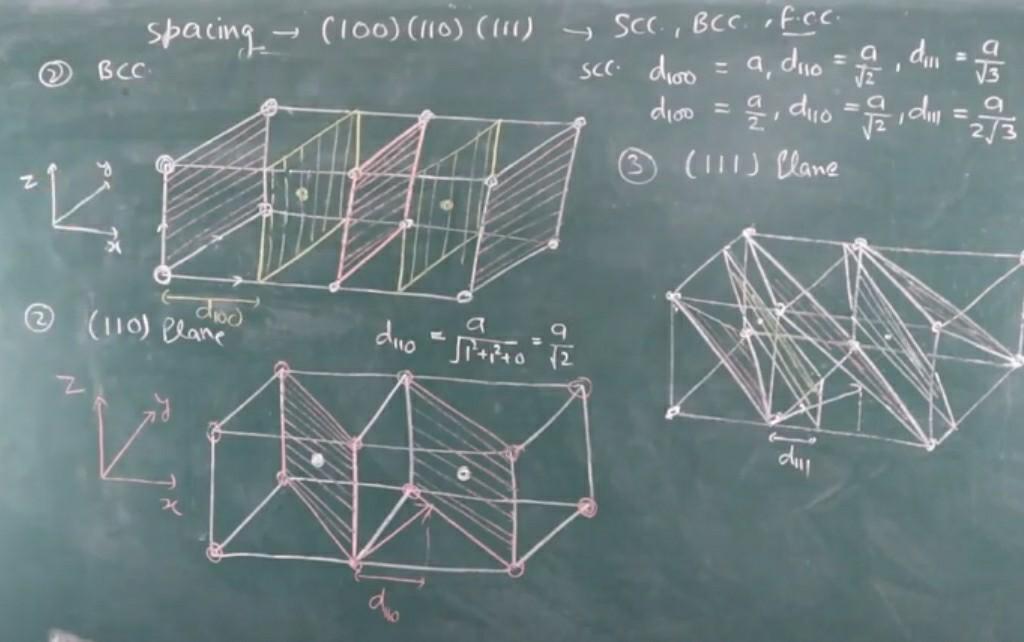 spacing → (100) (110) (111) → SCC., BCC., F.CC.
② BCC.
SCC. d₁₀₀ = a, d₁₁₀ = a/√2, d₁₁₁ = a/√3
d₁₀₀ = a/2, d₁₁₀ = a/√2, d₁₁₁ = a/2√3
③ (111) Plane
z y x
d₁₀₀
② (110) Plane
d₁₁₀ = a/√1²+1²+0 = a/√2
z y x
d₁₁₁
d₁₁₀